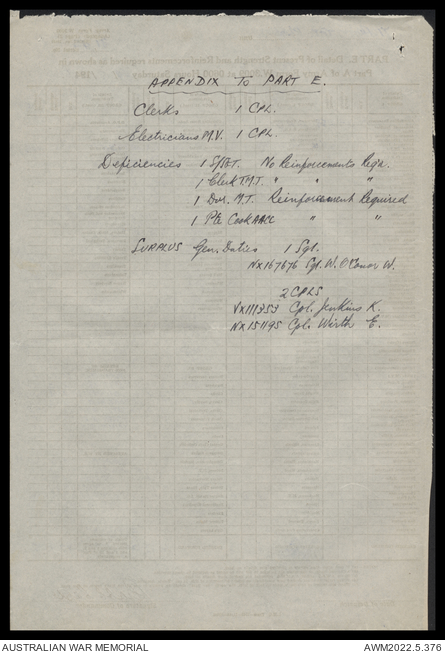 APPENDIX TO PART E.
Clerks 1 CPL.
Electricians M.V. 1 CPL.
Deficiencies 1 S/SGT. No Reinforcements Reqd.
1 Clerk T.M.T. " " "
1 Dvr. M.T. Reinforcement Required
1 Pte Cook AACC " "
SURPLUS Gen. Duties 1 Sgt.
NX167676 Sgt. W. O'Conor W.
2 CPLS
VX111353 Cpl. Jenkins K.
NX151195 Cpl. Wirth E.
AUSTRALIAN WAR MEMORIAL
AWM2022.5.376